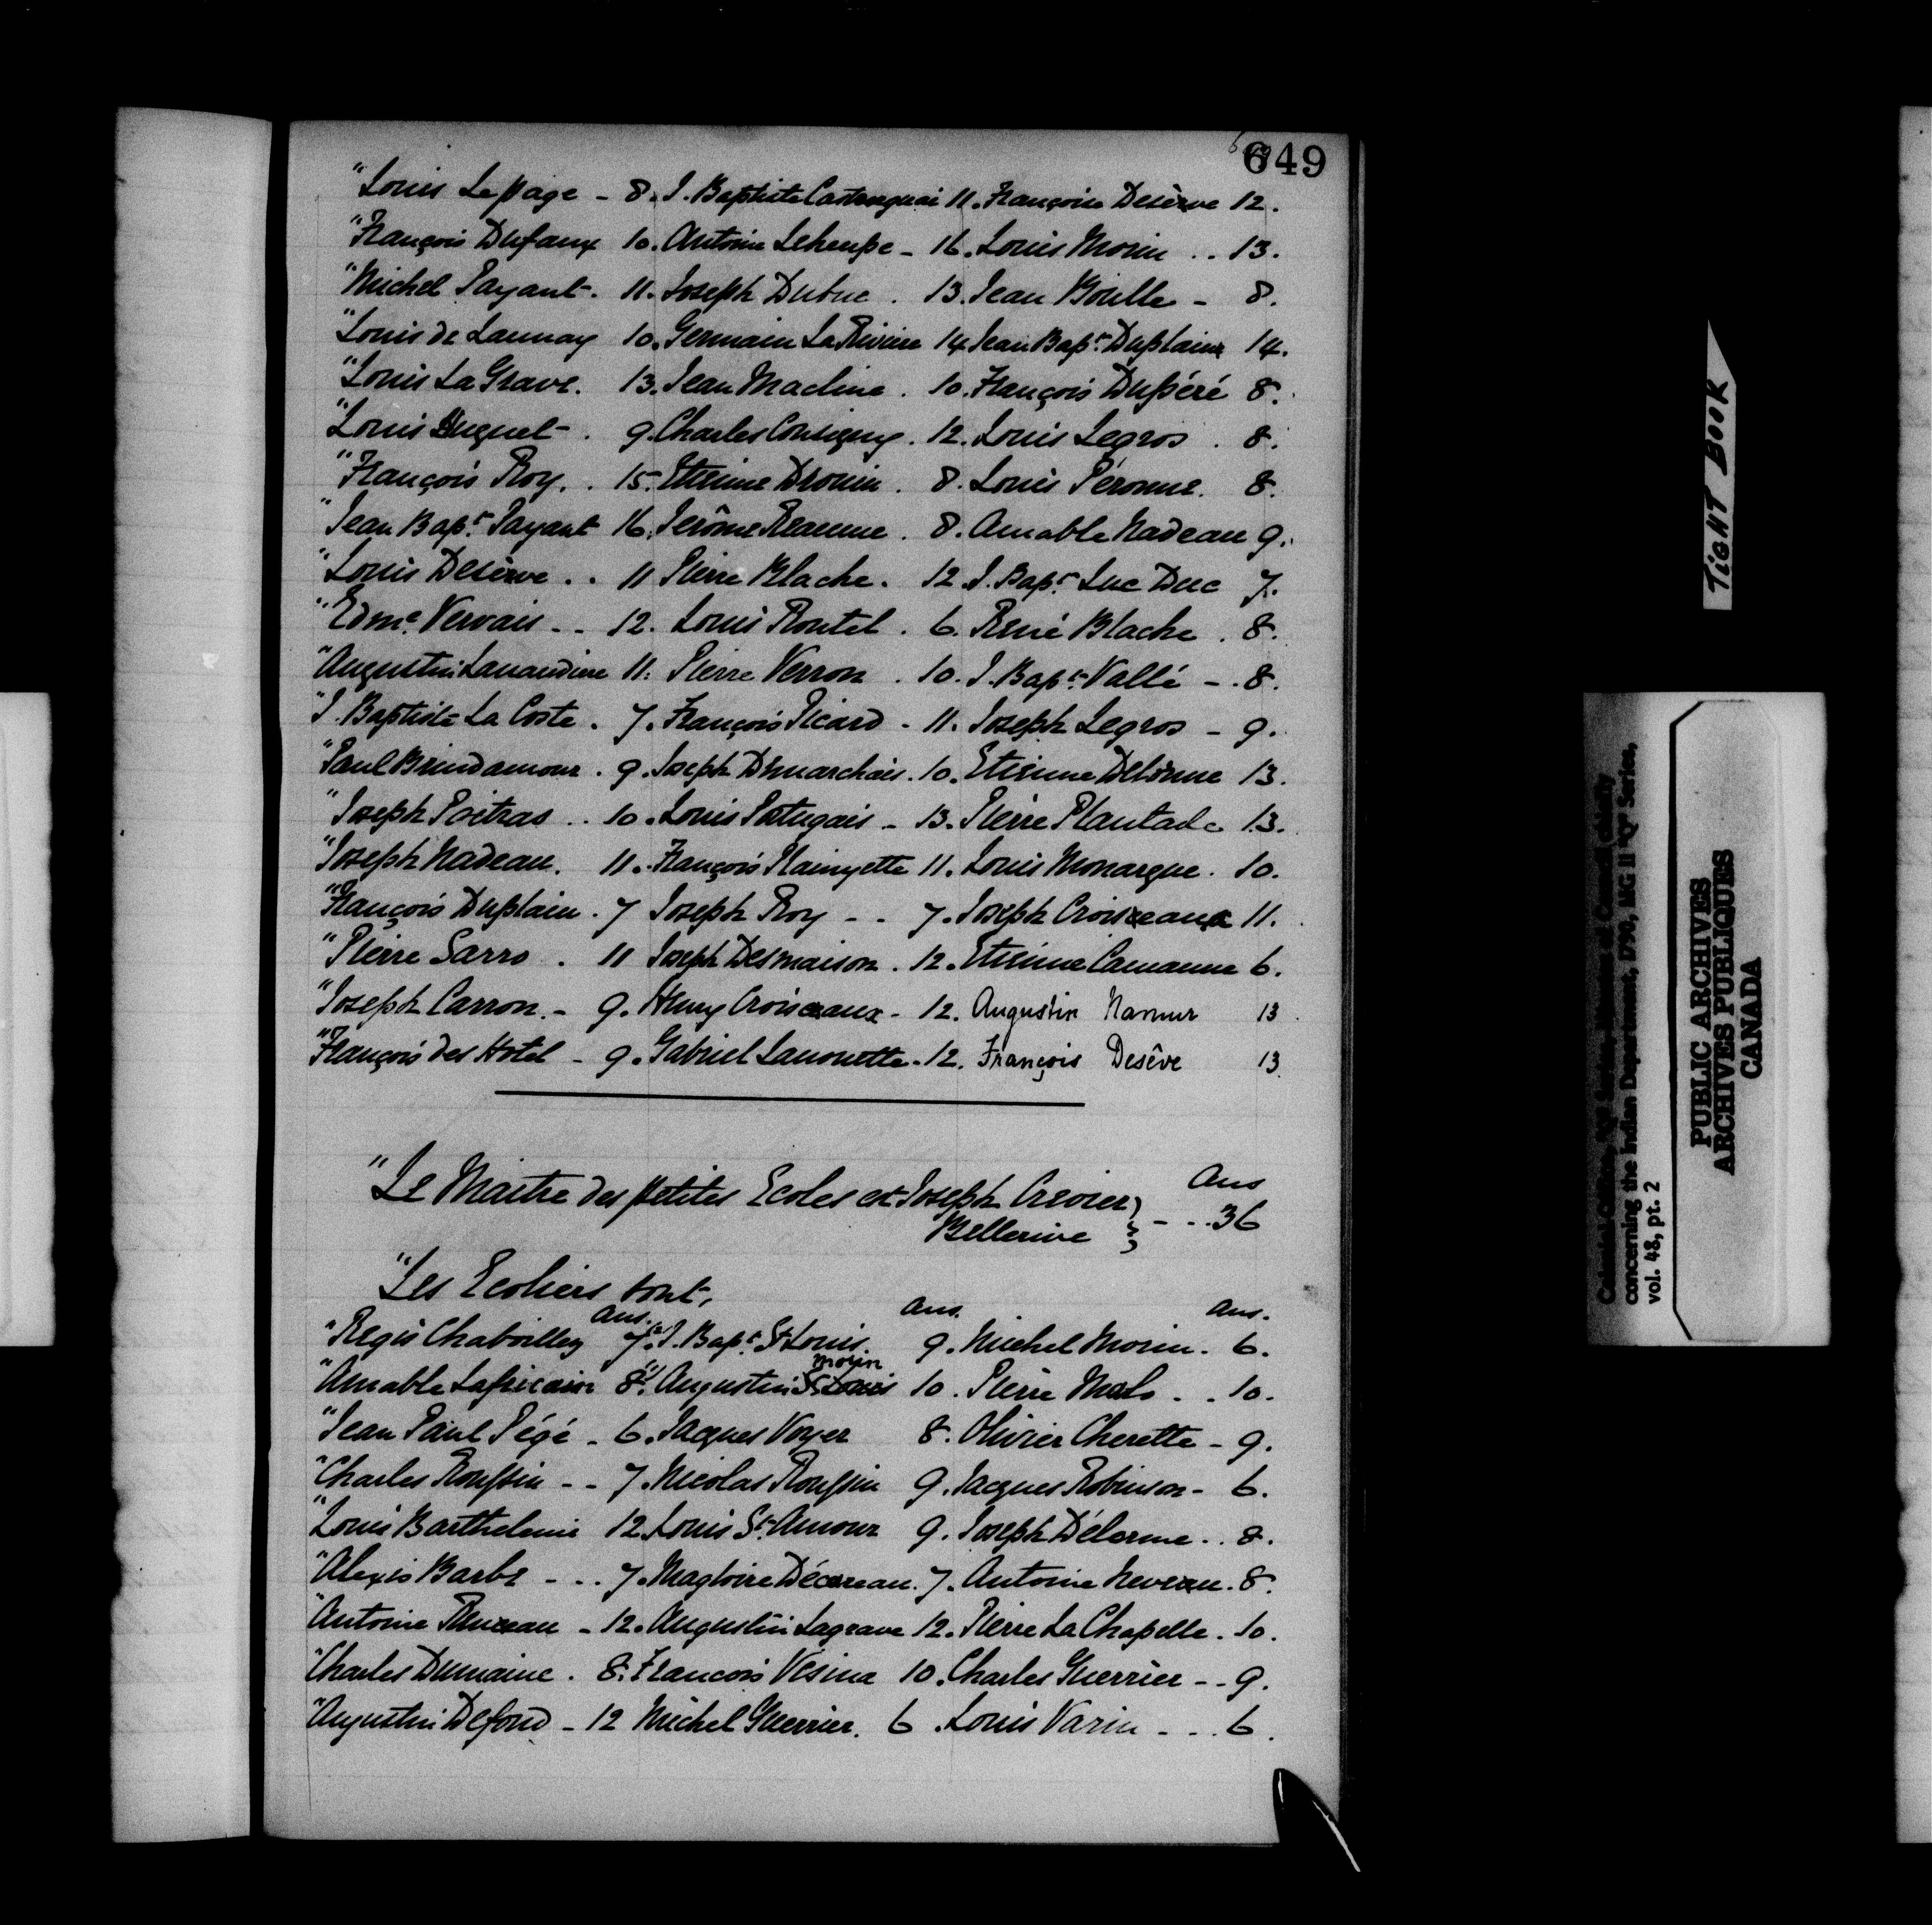 649
"Louis Le page - 8. J. Baptiste Castonguai 11. François Desève 12.
"François Dufaux 10. Antoine Leheupe - 16. Louis Morin . . 13.
"Michel Payant. 11. Joseph Dubuc . 13. Jean Boulle - 8.
"Louis de Launay 10. Germain La Rivière 14 Jean Bapt. Duplain 14.
"Louis La Grave. 13. Jean Macline . 10. François Dupéré 8.
"Louis Huguet . 9. Charles Cousigny . 12. Louis Legros . 8.
"François Roy. . 15. Etienne Drouin . 8. Louis Péronne. 8.
"Jean Bapt. Payant 16. Jerôme Reaume . 8. Amable Nadeau 9.
"Louis Desève . . 11 Pierre Blache . 12 J. Bapt. Luc Duc 7.
"Edme. Vervais - - 12. Louis Routel . 6. René Blache . 8.
"Augustin Lanaudiere 11. Pierre Verron . 10. J. Bapt. Vallé - . 8.
"J. Baptiste La Coste . 7. François Picard - 11. Joseph Legros - 9.
"Paul Brindamour . 9. Joseph D'marchais . 10. Etienne Delonne 13.
"Joseph Poitras . . 10. Louis Portugais - 13. Pierre Plantade 13.
"Joseph Nadeau. 11. François Plainyette 11. Louis Monarque . 10.
"François Duplain . 7 Joseph Roy - - 7. Joseph Croiseaux 11.
"Pierre Sarro . 11 Joseph Desmaison . 12. Etienne Camanne 6.
"Joseph Carron. - 9. Henry Croiseaux - 12. Augustin Namur 13.
"François des Hotel - 9. Gabriel Lanouette - 12. François Desêve 13.
"Le Maitre des petites Ecoles est Joseph Crevier } Ans
Bellerive } - - . 36
"Les Ecoliers sont,
Ans. Ans. Ans.
"Regis Chaboillez 7. J. Bapt. St Louis. 9. Michel Morin . 6.
"Amable Lafricain 8. Augustin St Louis Moyen 10. Pierre Malo . . 10.
"Jean Paul Pégé - 6. Jacques Voyer 8. Olivier Cherette - 9.
"Charles Roussin - - 7. Nicolas Roussin 9. Jacques Robinson - 6.
"Louis Barthelemi 12. Louis St. Amour 9. Joseph Délorme . . 8.
"Alexis Barbe - . . 7. Magloire Décareau. 7. Antoine Neveau . 8.
"Antoine Runeau - 12. Augustin Lagrave 12. Pierre La Chapelle . 10.
"Charles Dumaine . 8. Francois Vesina 10. Charles Guerrier - - 9.
"Augustin Defond - 12 Michel Guerrier. 6. Louis Varin - . . 6.
TIGHT BOOK
concerning the Indian Department, 1790, MG 11 "Q" Series,
vol. 48, pt. 2
PUBLIC ARCHIVES
ARCHIVES PUBLIQUES
CANADA